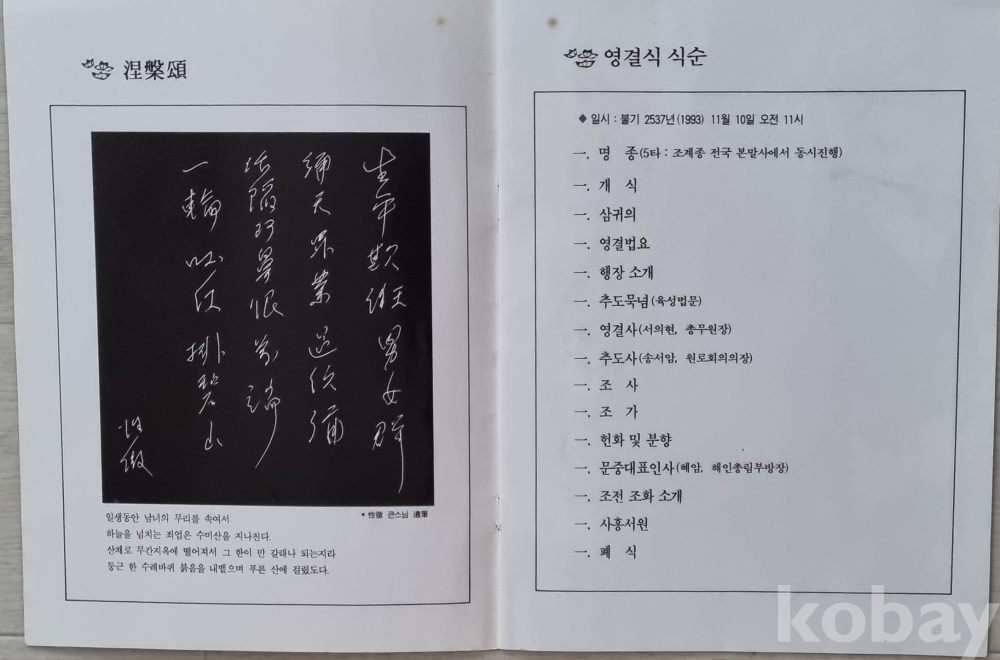 涅槃頌
生平欺狂男女群
彌天罪業過須彌
活陷阿鼻恨萬端
一輪吐紅掛碧山
性徹
* 性徹 큰스님 遺筆
일생동안 남녀의 무리를 속여서
하늘을 넘치는 죄업은 수미산을 지나친다.
산채로 무간지옥에 떨어져서 그 한이 만 갈래나 되는지라
둥근 한 수레바퀴 붉음을 내뱉으며 푸른 산에 걸렸도다.
영결식 식순
◆ 일시 : 불기 2537년(1993) 11월 10일 오전 11시
一. 명 종(5타 : 조계종 전국 본말사에서 동시진행)
一. 개 식
一. 삼귀의
一. 영결법요
一. 행장 소개
一. 추도묵념(육성법문)
一. 영결사(서의현, 총무원장)
一. 추도사(송서암, 원로회의의장)
一. 조 사
一. 조 가
一. 헌화 및 분향
一. 문중대표인사(혜암, 해인총림부방장)
一. 조전 조화 소개
一. 사홍서원
一. 폐 식
kobay